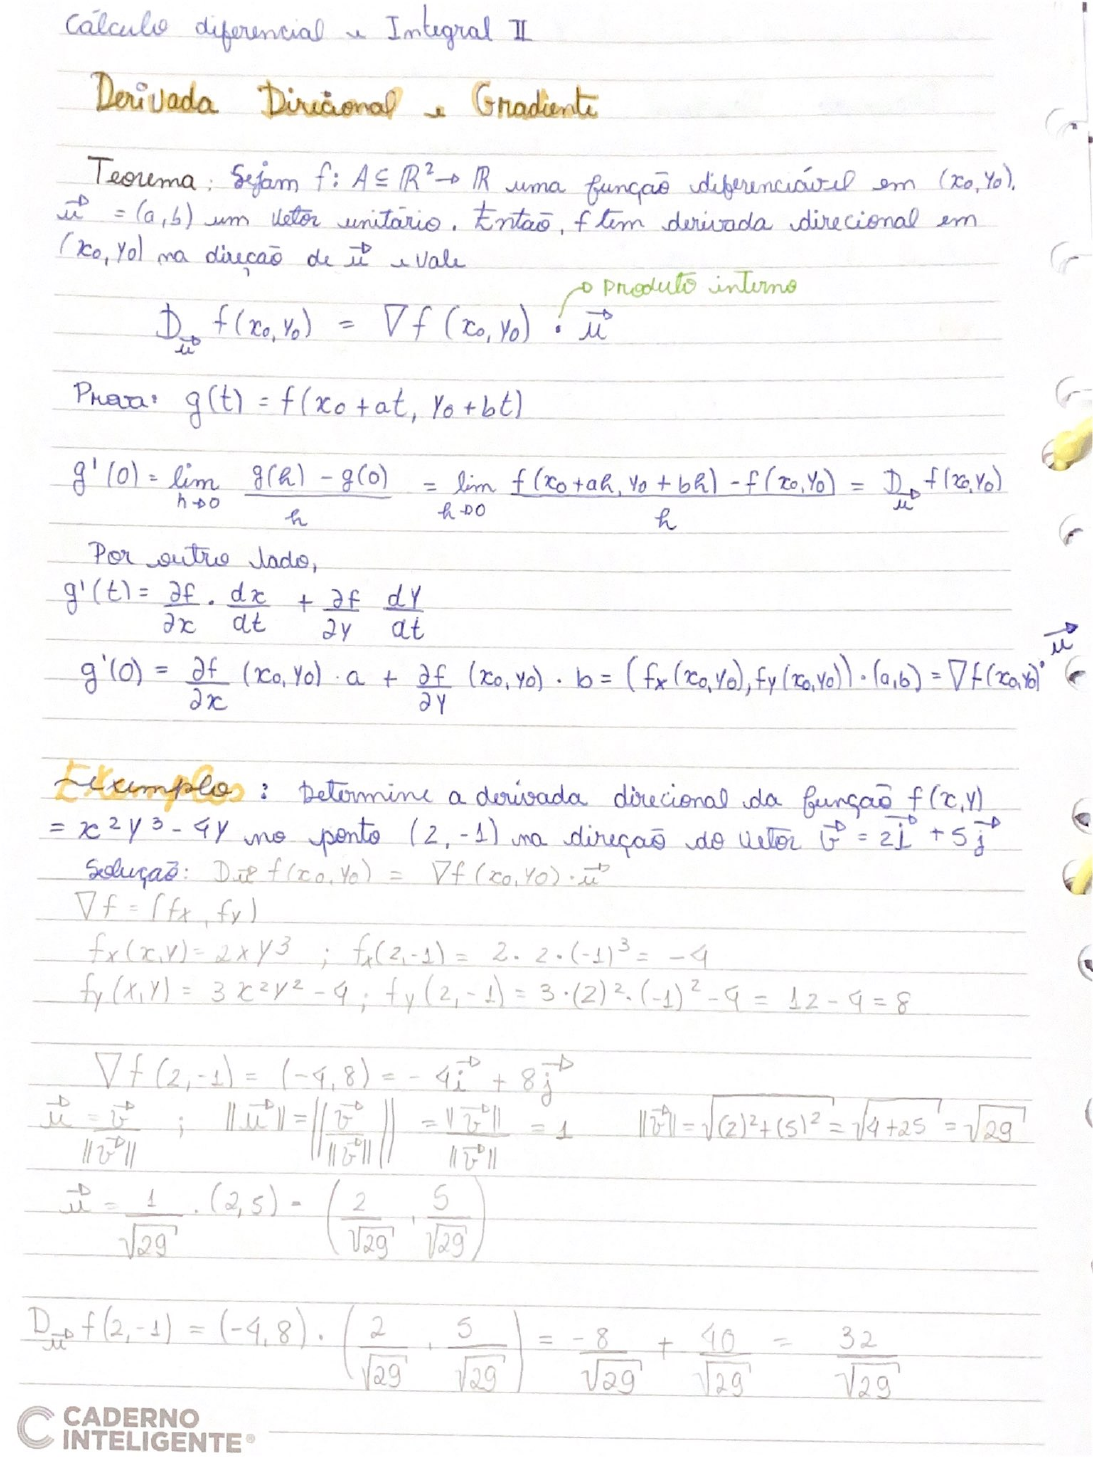 Cálculo diferencial e Integral II
Derivada Direcional e Gradiente
Teorema: Sejam f: A ⊆ ℝ² → ℝ uma função diferenciável em (x₀, y₀),
u⃗ = (a, b) um vetor unitário. Então, f tem derivada direcional em
(x₀, y₀) na direção de u⃗ e vale
→ produto interno
D_u⃗ f(x₀, y₀) = ∇f (x₀, y₀) • u⃗
Prova: g(t) = f(x₀ + at, y₀ + bt)
g'(0) = lim h→0 (g(h) - g(0))/h = lim h→0 (f(x₀ + ah, y₀ + bh) - f(x₀, y₀))/h = D_u⃗ f(x₀, y₀)
Por outro lado,
g'(t) = ∂f/∂x · dx/dt + ∂f/∂y dy/dt
g'(0) = ∂f/∂x (x₀, y₀) · a + ∂f/∂y (x₀, y₀) · b = (fx(x₀, y₀), fy(x₀, y₀)) · (a, b) = ∇f(x₀, y₀) · u⃗
Exemplos: Determine a derivada direcional da função f(x, y)
= x²y³ - 4y no ponto (2, -1) na direção do vetor v⃗ = 2i⃗ + 5j⃗
Solução: D_u⃗ f(x₀, y₀) = ∇f(x₀, y₀) · u⃗
∇f = (fx, fy)
fx(x, y) = 2xy³ ; fx(2, -1) = 2 · 2 · (-1)³ = -4
fy(x, y) = 3x²y² - 4 ; fy(2, -1) = 3 · (2)² · (-1)² - 4 = 12 - 4 = 8
∇f(2, -1) = (-4, 8) = -4i⃗ + 8j⃗
u⃗ = v⃗/||v⃗|| ; ||u⃗|| = ||v⃗/||v⃗|| || = ||v⃗||/||v⃗|| = 1 ||v⃗|| = √((2)² + (5)²) = √(4 + 25) = √29
u⃗ = 1/√29 · (2, 5) = (2/√29, 5/√29)
D_u⃗ f(2, -1) = (-4, 8) · (2/√29, 5/√29) = -8/√29 + 40/√29 = 32/√29
CADERNO
INTELIGENTE®